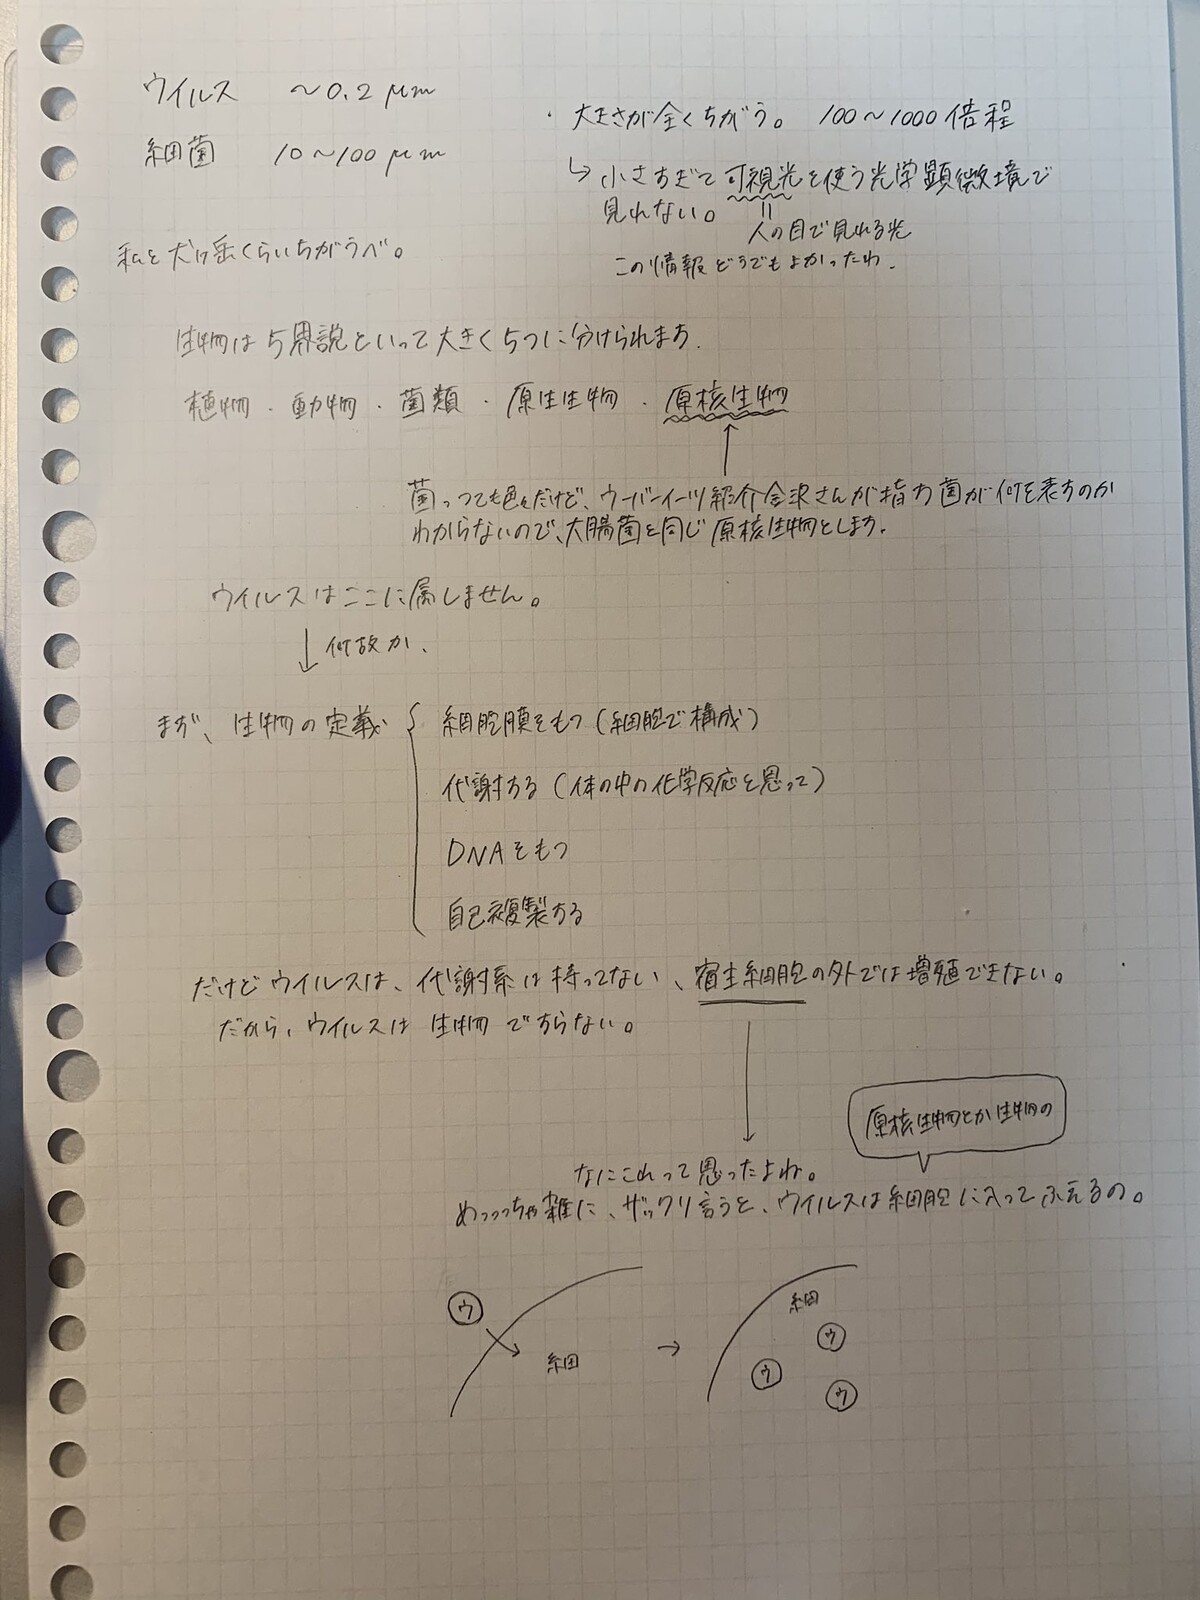 ウイルス ~0.2 μm
細菌 10~100 μm
・大きさが全くちがう。 100~1000倍程
↳小さすぎて可視光を使う光学顕微境で
見れない。
=
人の目で見れる光
この情報どうでもよかったわ.
私と犬ヶ岳くらいちがうべ。
生物は5界説といって大きく5つに分けられます.
植物・動物・菌類・原生生物・原核生物
↑
菌っつても色々だけど、ウーバーイーツ紹介金沢さんが指す菌が何を表すのか
わからないので、大腸菌と同じ原核生物とします.
ウイルスはここに属しません。
↓何故か.
まず、生物の定義
細胞膜をもつ(細胞で構成)
代謝する(体の中の化学反応を思って)
DNAをもつ
自己複製する
だけどウイルスは、代謝系は持ってない、宿主細胞の外では増殖できない。
だから、ウイルスは生物ですらない。
↓
原核生物とか生物の
なにこれって思ったよね。
めっっっちゃ雑に、ザックリ言うと、ウイルスは細胞に入ってふえるの。
ウ 細 → 細 ウ ウ ウ